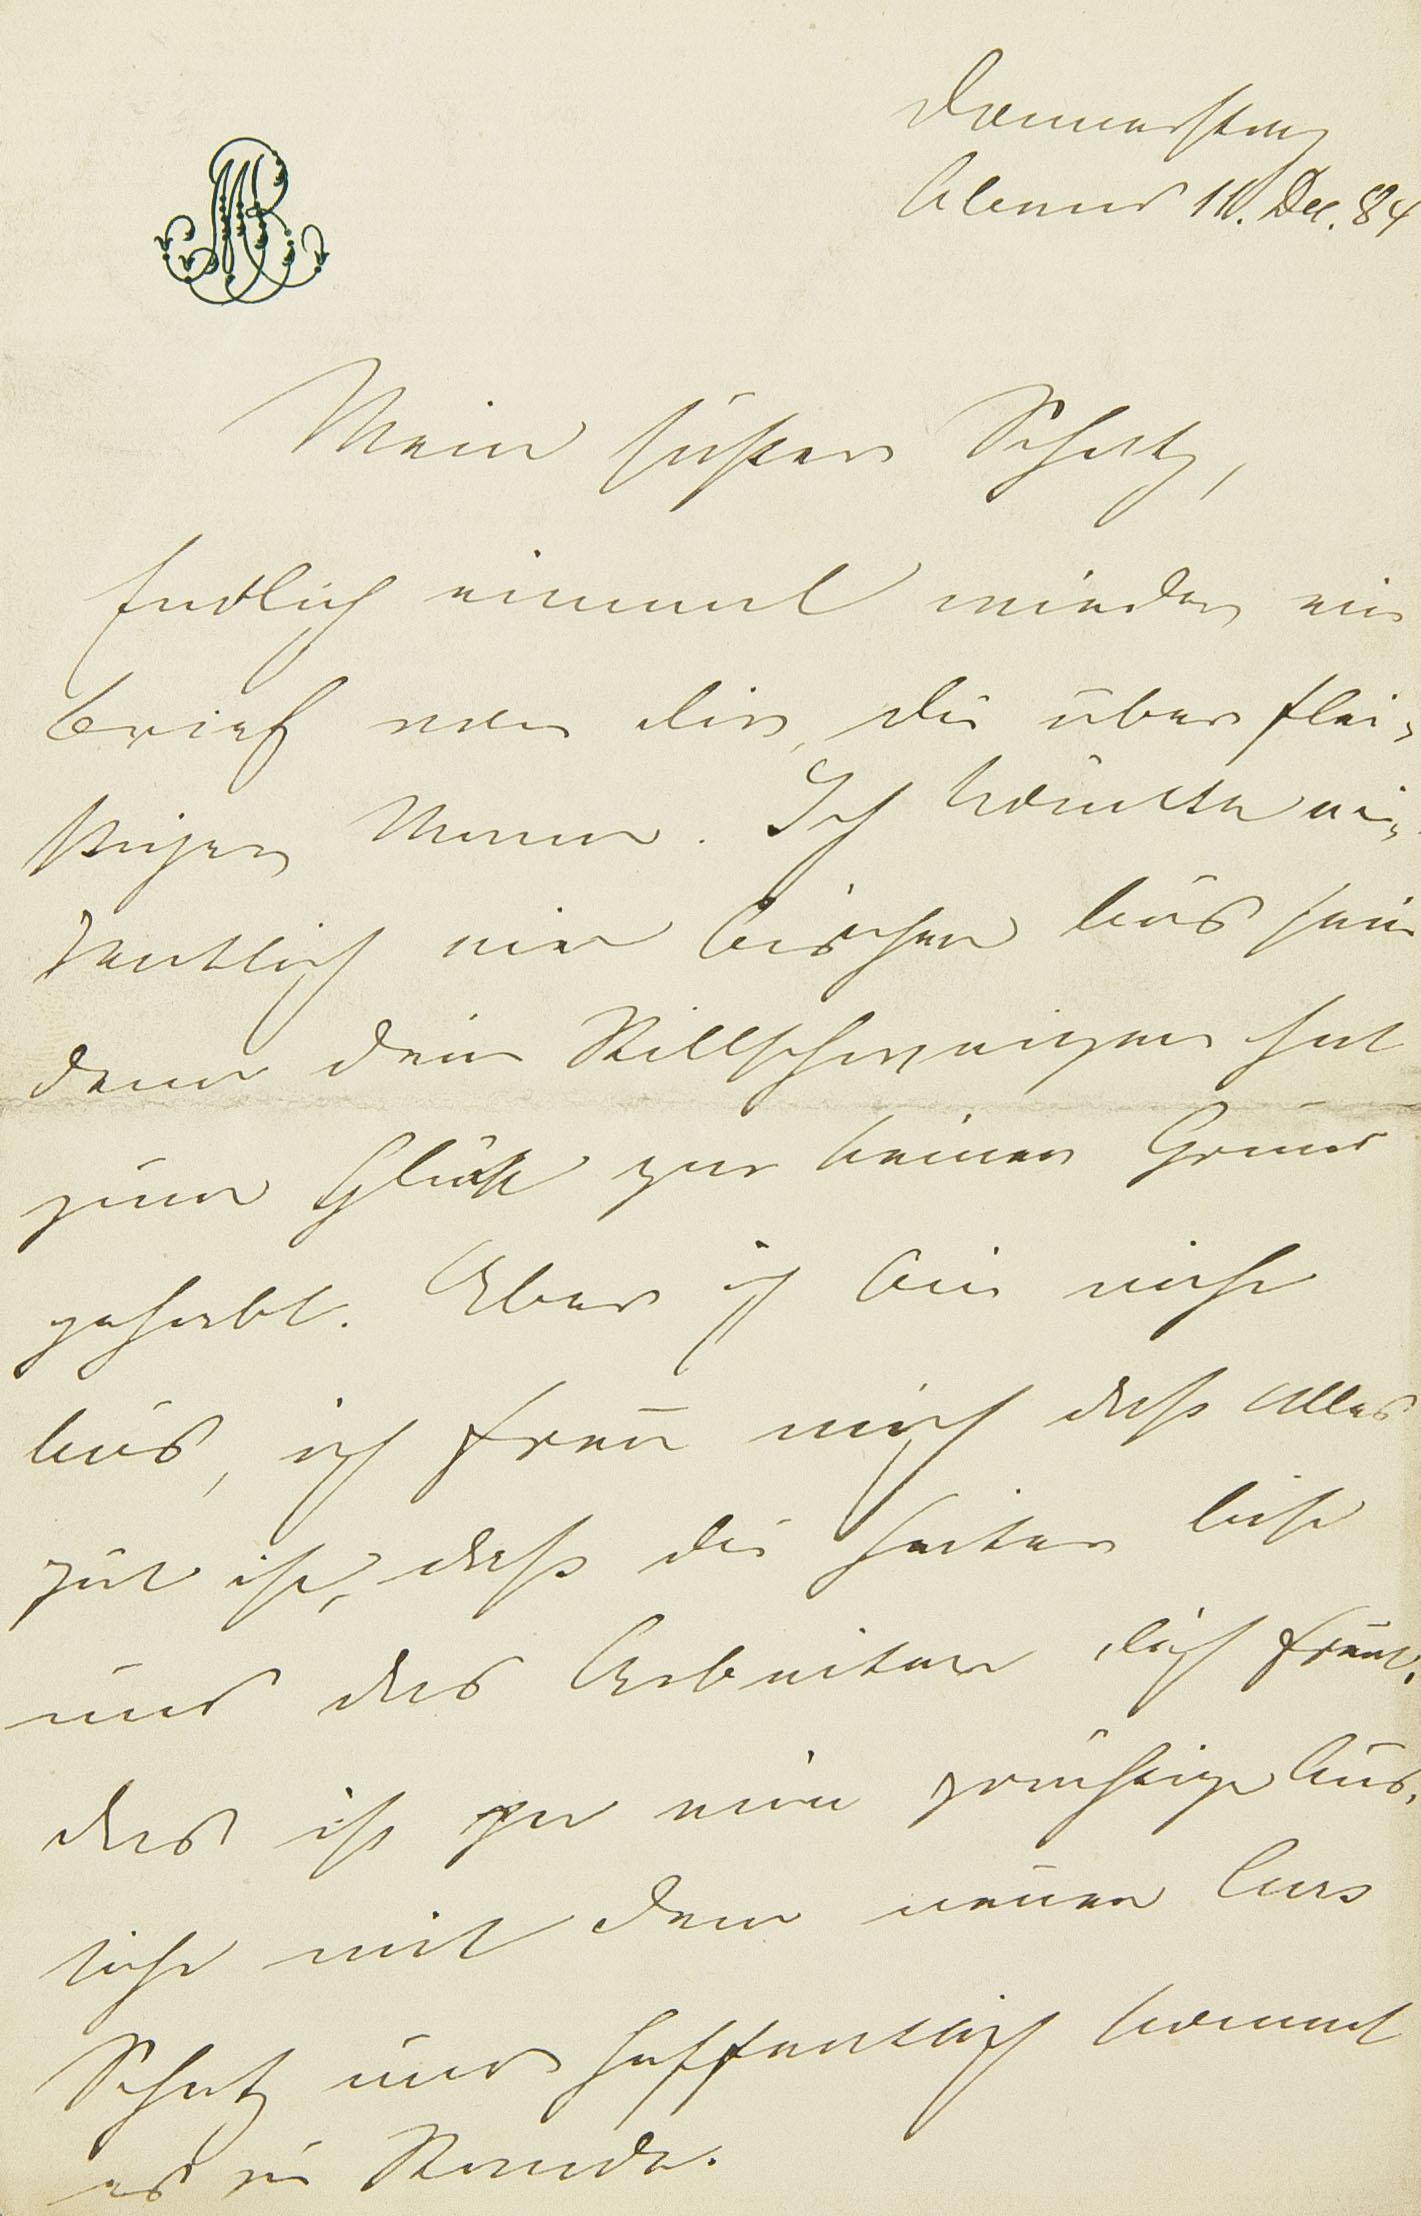 MB
Donnerstag
Abend 11. Dec. 84
Mein süßer Schatz,
Endlich einmal wieder ein
Brief von dir, du über flei-
ßiger Mann. Ich könnte ei-
gentlich ein bischen bös sein
denn dein Stillschweigen hat
zum Glück gar keinen Grund
gehabt. Aber ich bin nicht
bös, ich freu mich daß Alles
gut ist, daß du heiter bist
und das Arbeiten dich freut,
das ist ja eine prächtige Aus,
sicht mit dem neuen Curs
Schatz und hoffentlich kommt
es zu Stande.